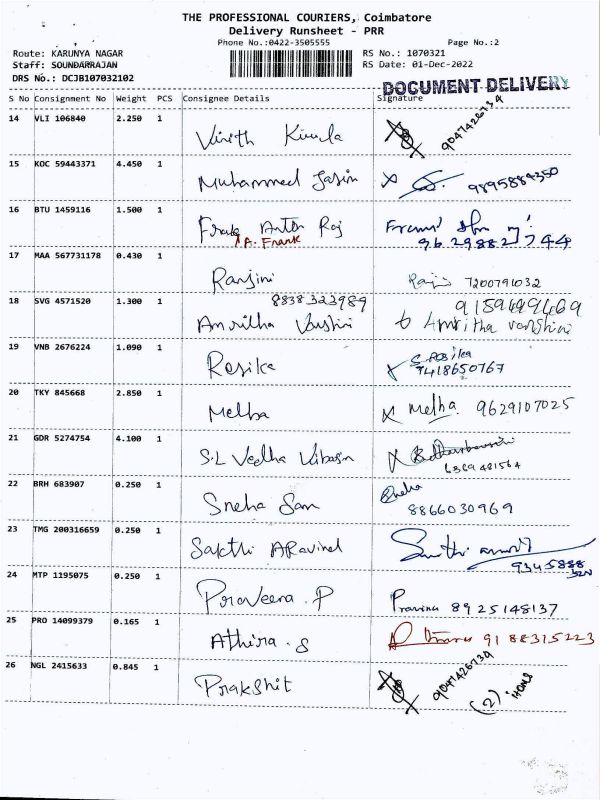 THE PROFESSIONAL COURIERS, Coimbatore
Delivery Runsheet - PRR
Phone No.:0422-3505555 Page No.:2
Route: KARUNYA NAGAR RS No.: 1070321
Staff: SOUNDARRAJAN RS Date: 01-Dec-2022
DRS No.: DCJB107032102
DOCUMENT DELIVERY
S No Consignment No Weight PCS Consignee Details Signature
14 VLI 106840 2.250 1
9047426739
15 KOC 59443371 4.450 1
Muhammed Jasin X 9895884350
16 BTU 1459116 1.500 1
Frank Anton Raj
A. Frank
17 MAA 567731178 0.430 1
Ranjini 7200791032
18 SVG 4571520 1.300 1
8838322989 9159499469
Varshini Amritha varshini
19 VNB 2676224 1.090 1
Rasika X 9418650767
20 TKY 845668 2.850 1
Melba X Melba. 9629107025
21 GDR 5274754 4.100 1
S.L Vedha X
22 BRH 683907 0.250 1
Sneha Sam Sneha
8866030969
23 TMG 200316659 0.250 1
Sakthi ARavind
24 MTP 1195075 0.250 1
Praveena . P Pravina 8925148137
25 PRO 14099379 0.165 1
Athira . S 9188315223
26 NGL 2415633 0.845 1
Prakshit 9047426739
(2)